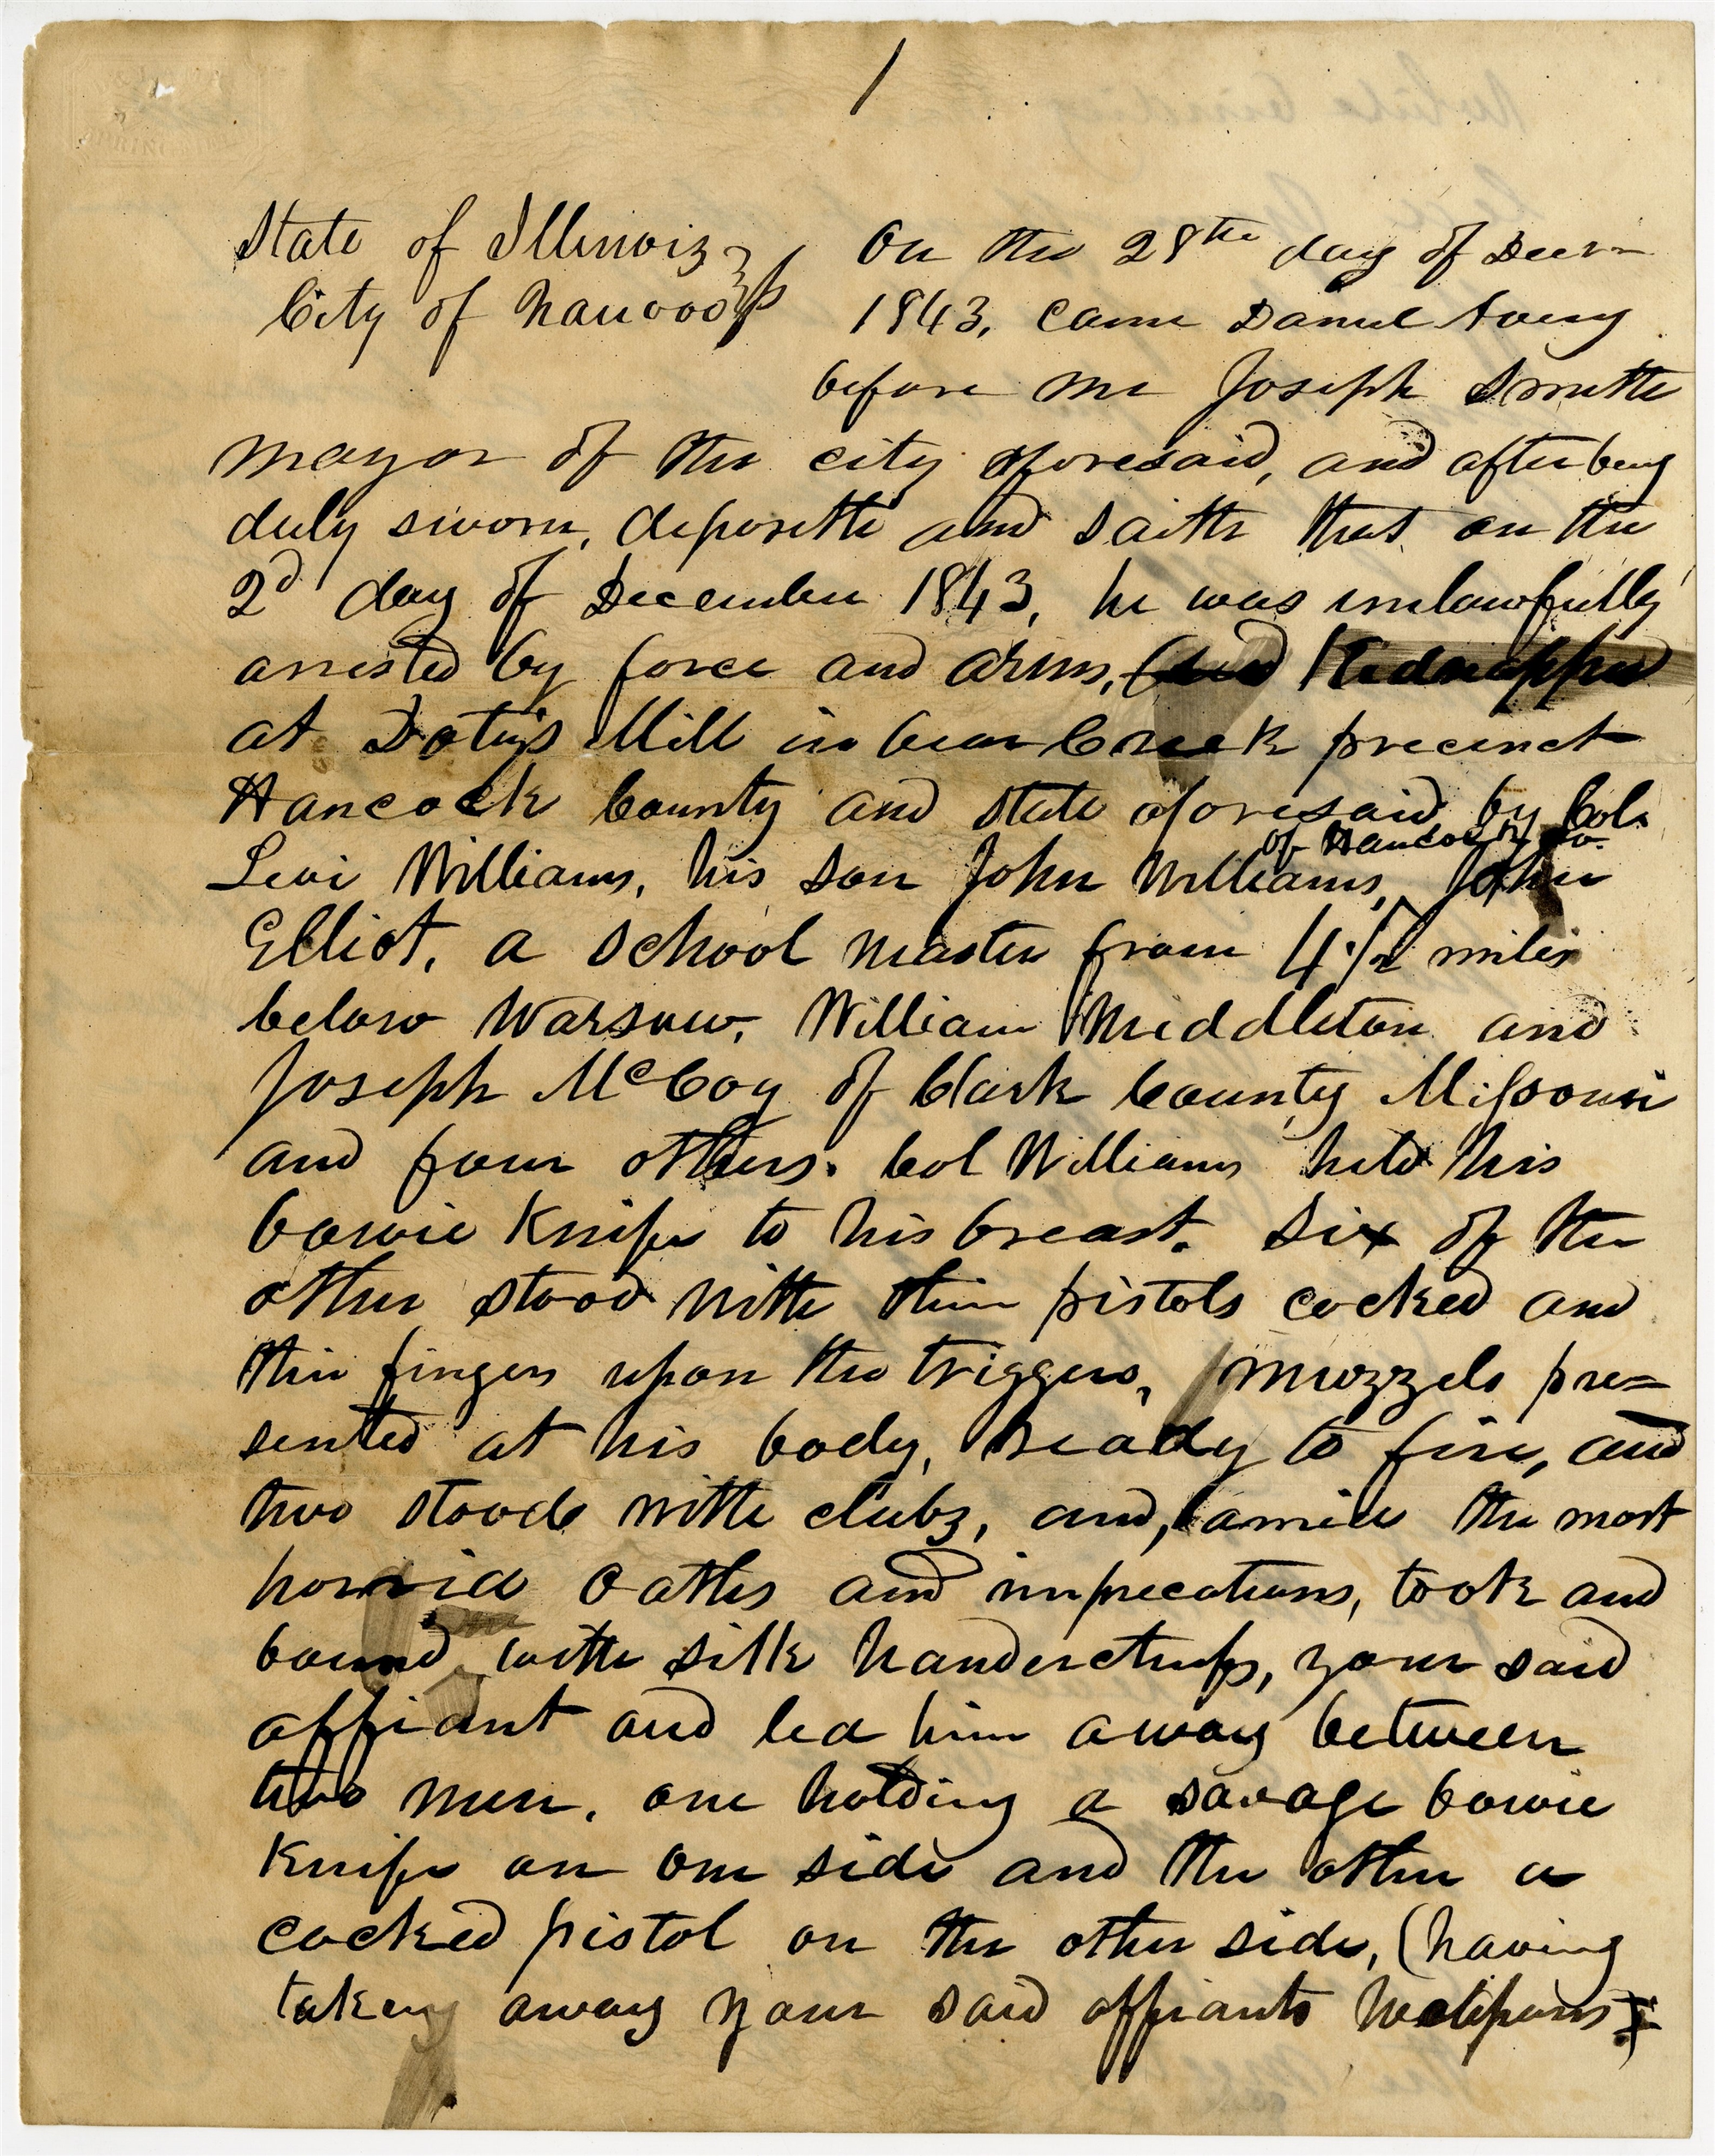 1
State of Illinois } ss
City of Nauvoo }
On the 28th day of Decr
1843, came Daniel Avery
before me Joseph Smith
mayor of the city aforesaid, and after being
duly sworn, deposeth and saith that on the
2d day of December 1843, he was unlawfully
arrested by force and arms, (and Kidnapped
at Doty's Mill in bear Creek precinct
Hancock County and state aforesaid by Col.
of Hancock Co.
Levi Williams, his son John Williams, John
Elliot, a school master from 4 1/2 miles
below Warsaw, William Middleton and
Joseph McCoy of Clark County Missouri
and four others. Col Williams held his
bowie Knife to his breast. Six of the
other stood with their pistols cocked and
their fingers upon the triggers, muzzels pre=
sented at his body, ready to fire, and
two stood with clubs, and, amid the most
horrid Oaths and imprecations, took and
bound with silk handerchiefs, your said
affiant and led him away between
two men, one holding a savage bowie
Knife on one side and the other a
cocked pistol on the other side, (having
taken away your said affiants weapons;)